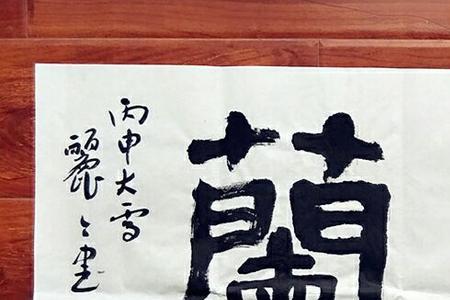 蘭
丙申大雪
麗〻書